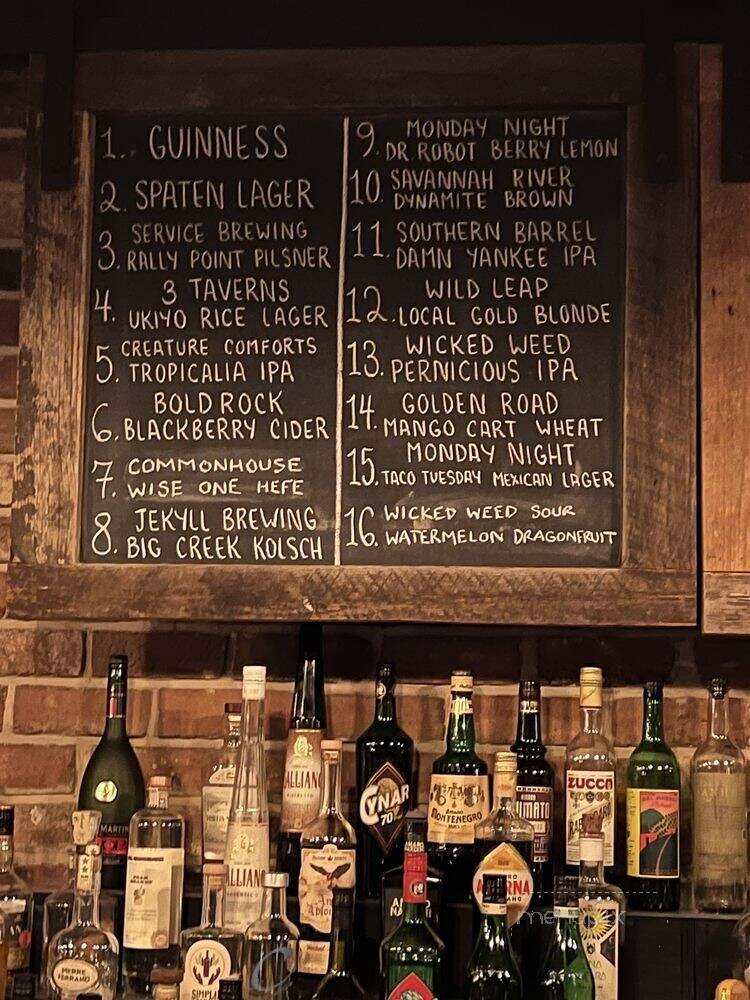 1. GUINNESS
2. SPATEN LAGER
3. SERVICE BREWING
RALLY POINT PILSNER
4. 3 TAVERNS
UKIYO RICE LAGER
5. CREATURE COMFORTS
TROPICALIA IPA
6. BOLD ROCK
BLACKBERRY CIDER
7. COMMONHOUSE
WISE ONE HEFE
8. JEKYLL BREWING
BIG CREEK KOLSCH
9. MONDAY NIGHT
DR. ROBOT BERRY LEMON
10. SAVANNAH RIVER
DYNAMITE BROWN
11. SOUTHERN BARREL
DAMN YANKEE IPA
12. WILD LEAP
LOCAL GOLD BLONDE
13. WICKED WEED
PERNICIOUS IPA
14. GOLDEN ROAD
MANGO CART WHEAT
15. MONDAY NIGHT
TACO TUESDAY MEXICAN LAGER
16. WICKED WEED SOUR
WATERMELON DRAGONFRUIT
MARTIN
ALLIANO
ALLIANO
CYNAR
70
MONTENEGRO
ZUCCA
PIERRE
FERRAND